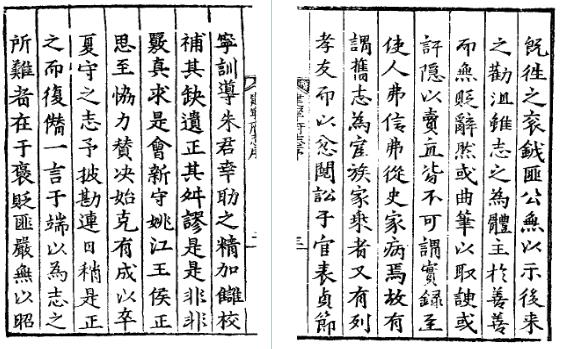 寧訓導朱君幸助之精加讎校
補其缺遺正其舛謬是是非非
覈真求是會新守姚江王侯正
思至恊力賛决始克有成以卒
夏守之志予披勘連日稍是正
之而復僭一言于端以為志之
所難者在于褒貶匪嚴無以昭
旣徃之衮鉞匪公無以示後来
之勸沮雖志之為體主於善善
而無貶辭然或曲筆以取諛或
訐隱以賣直皆不可謂實錄至
使人弗信弗從史家病焉故有
謂舊志為宦族家乗者又有列
孝友而以忿鬩訟于官表貞節